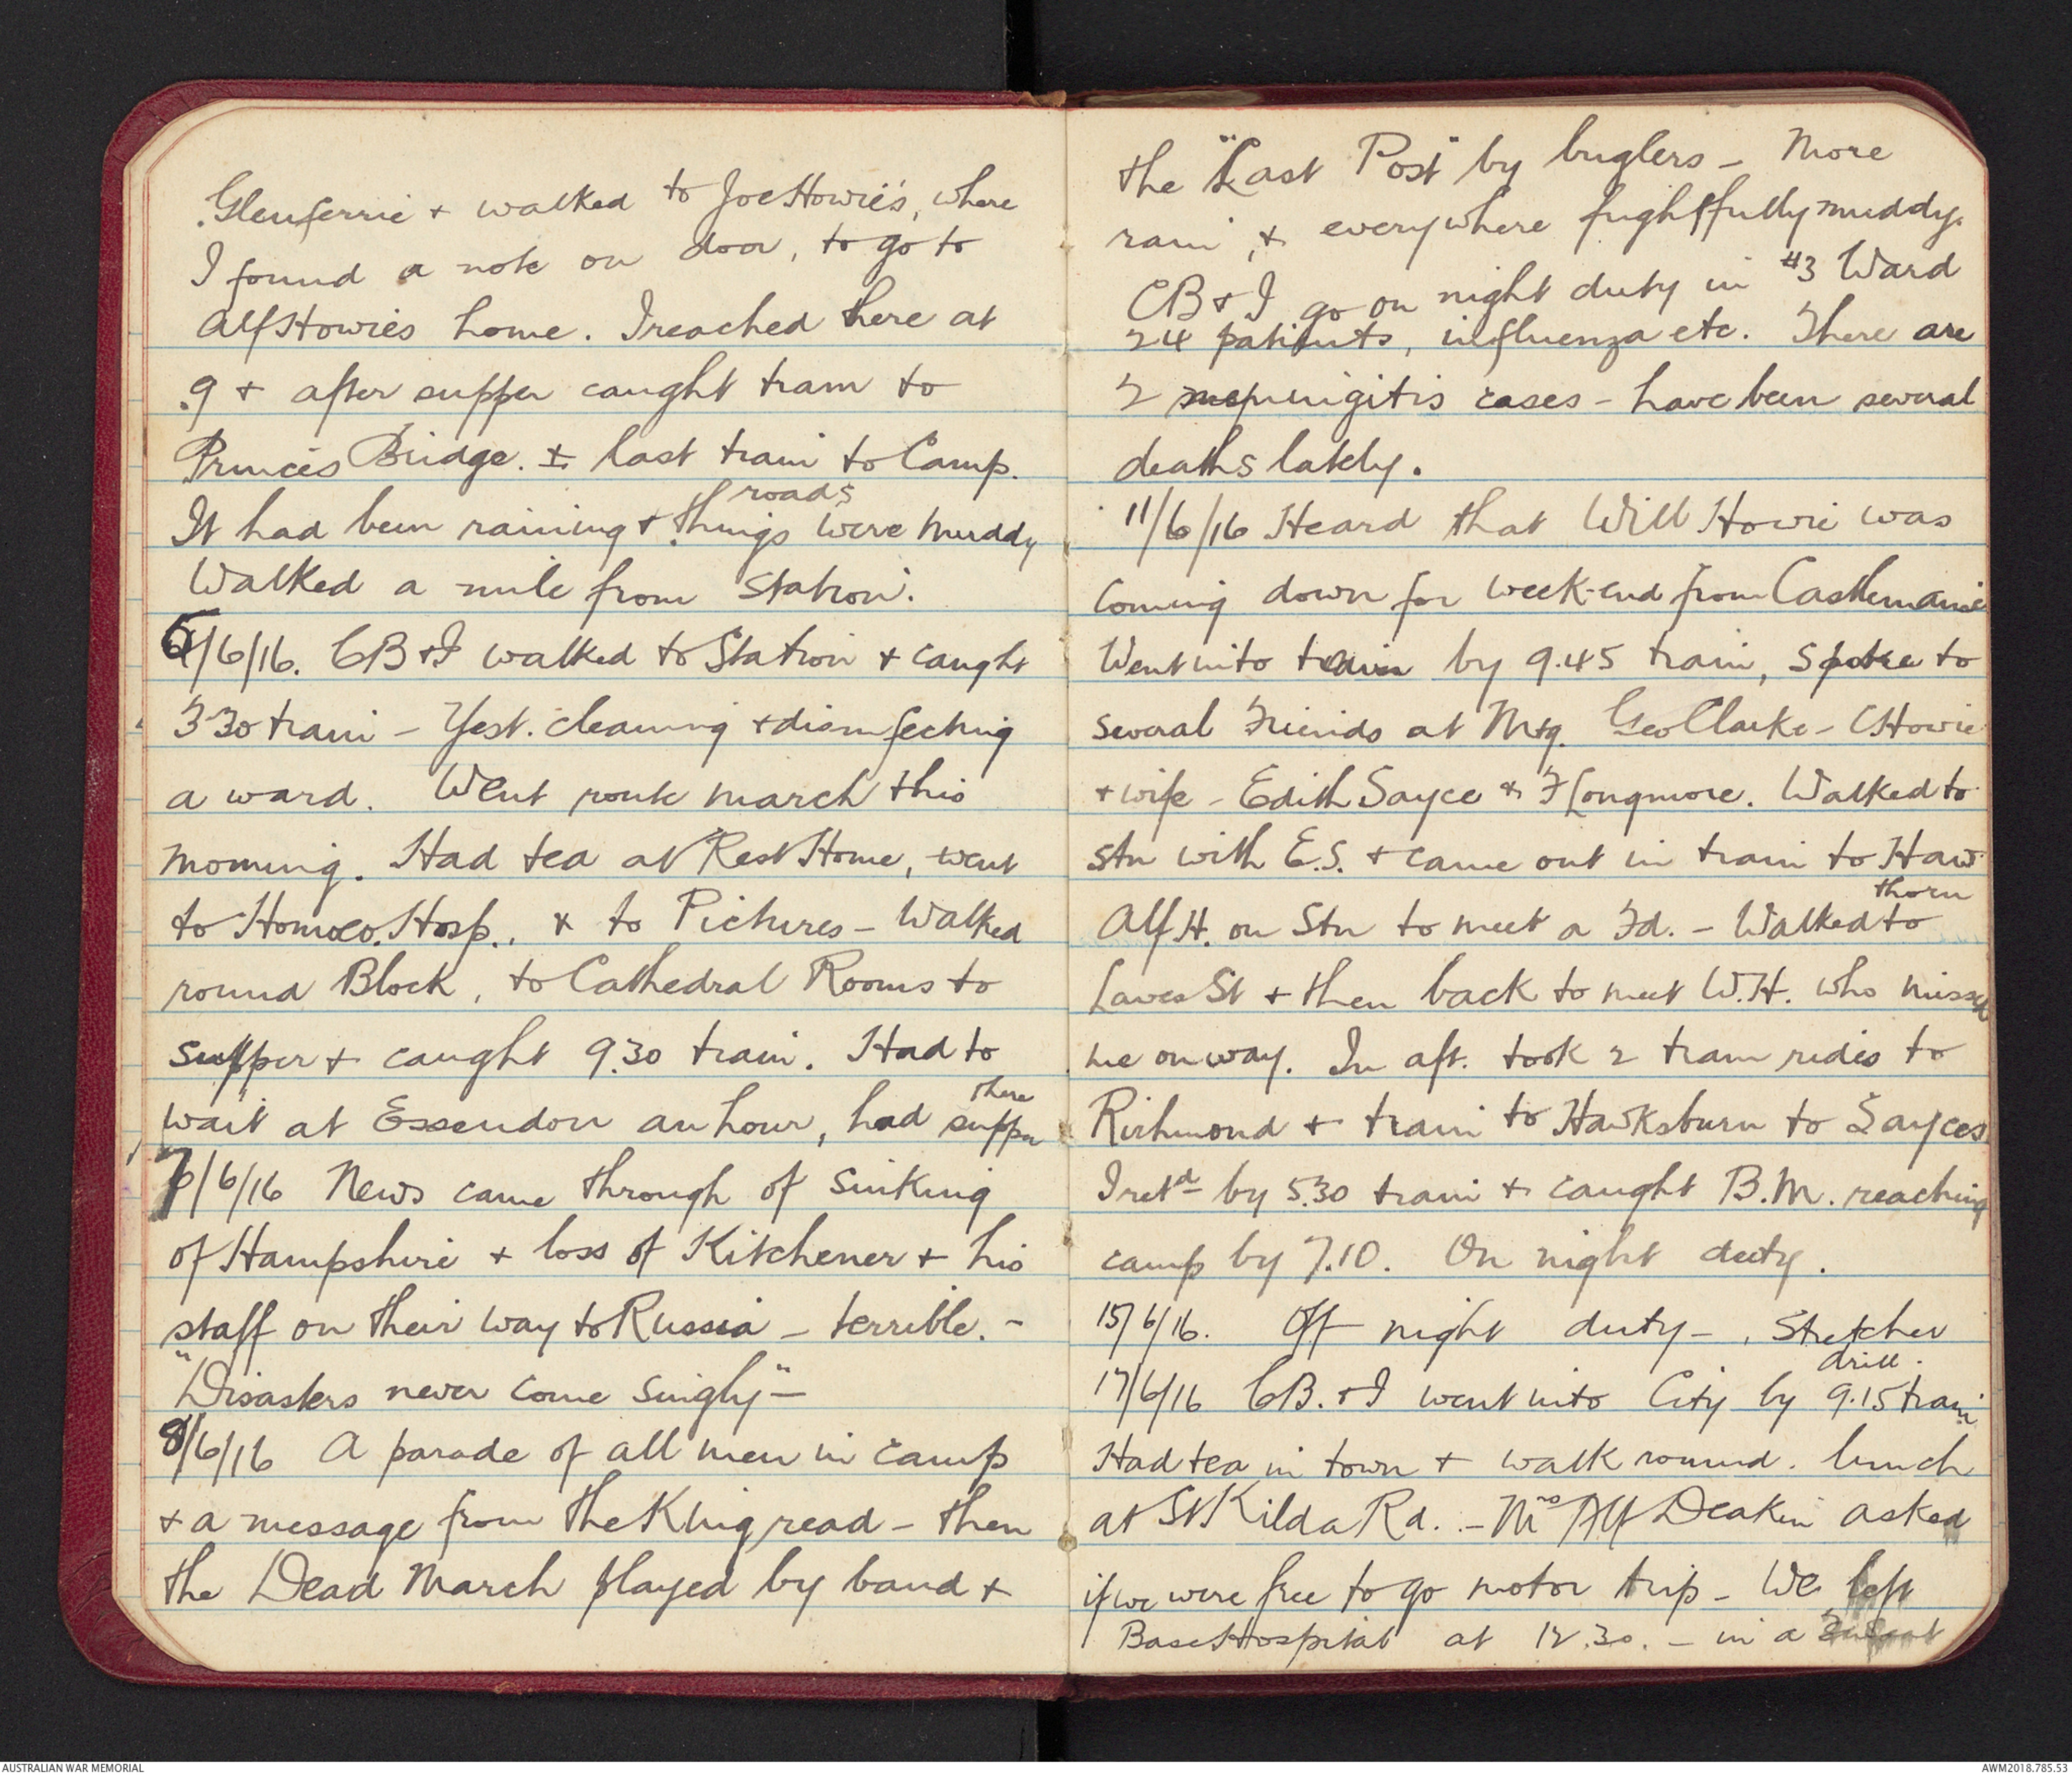 Glenferrie + walked to Joe Howie's, where
I found a note on door, to go to
Alf Howies home. I reached there at
9 + after supper caught tram to
Princes Bridge. + last train to Camp.
roads
It had been raining + things were muddy
Walked a mile from Station.
6/6/16. CB + I walked to Station + caught
3.30 train - Yest. cleaning + disinfecting
a ward. Went route march this
morning. Had tea at Rest Home, went
to Homoeo. Hosp., + to Pictures - Walked
round Block, to Cathedral Rooms to
supper + caught 9.30 train. Had to
there
wait at Essendon an hour, had supper
7/6/16 News came through of sinking
of Hampshire + loss of Kitchener + his
staff on their way to Russia - terrible. -
"Disasters never come singly" -
8/6/16 A parade of all men in camp
+ a message from the King read - then
the Dead March played by band +
the "Last Post" by buglers - More
rain, + everywhere frightfully muddy.
CB + I go on night duty in #3 Ward
24 patients, influenza etc. There are
2 meningitis cases - have been several
deaths lately.
11/6/16 Heard that Will Howie was
coming down for week-end from Castlemaine
Went into by 9.45 train, Spoke to
several Friends at Mtg. Geo Clarke - C Howie
+ wife - Edith Sayce + F Longmore. Walked to
stn with E.S. + came out in train to Haw
thorn
Alf H. on Stn to meet a Fd. - Walked to
Laves St + then back to meet W.H. who missed
me on way. In aft. took 2 tram rides to
Richmond + train to Hawksburn to Sayces
I retd by 5.30 train + caught B.M. reaching
camp by 7.10. On night duty.
15/6/16. Off night duty - Stretcher
drill.
17/6/16 CB. + I went into City by 9.15 train
Had tea in town + walk round. lunch
at St Kilda Rd. - Mrs Alf Deakin asked
if we were free to go motor trip - We left
Base Hospital at 12.30. - in a
AUSTRALIAN WAR MEMORIAL
AWM2018.785.53